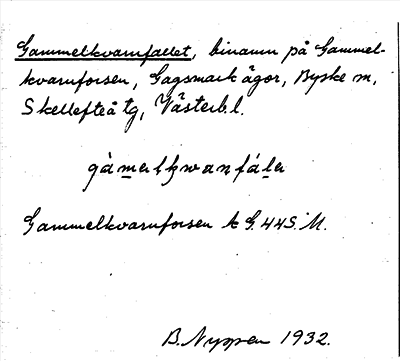 Gammelkvarnfallet, binamn på Gammel-
kvarnforsen, Gagsmark ägor, Byske m,
Skellefteå tg, Västerb.l.
gàmerlkwanfáler
Gammelkvarnforsen k G.445. M.
B. Nyssen 1932.